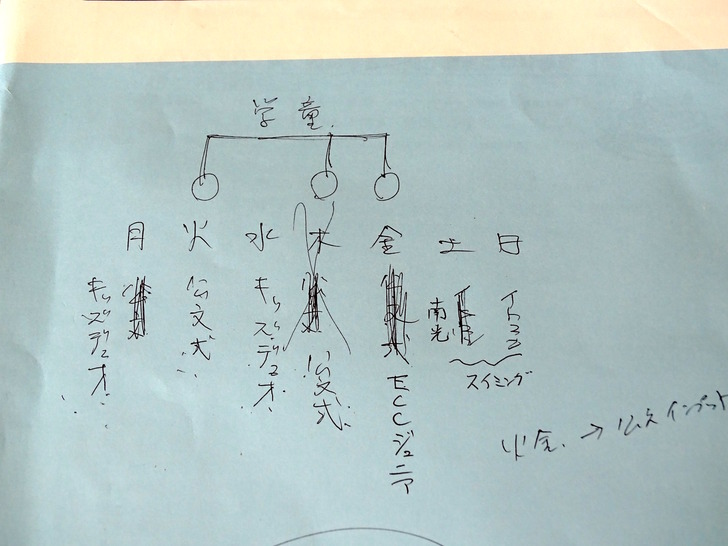 学童
月 火 水 木 金 土 日
キッズデュオ
公文式
キッズデュオ
公文式
ECCジュニア
南光
イトマン
スイミング
火金 → 公文インプット